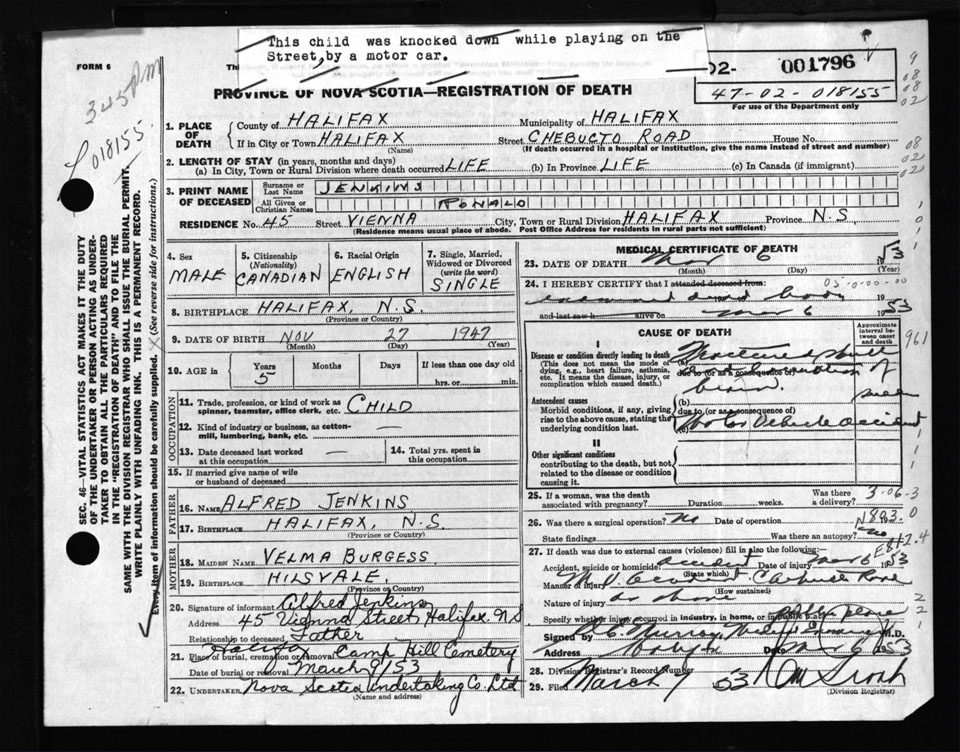 This child was knocked down while playing on the
Street, by a motor car.
FORM 6
Th
02- 001796
47-02-018155
For use of the Department only
PROVINCE OF NOVA SCOTIA—REGISTRATION OF DEATH
345 pm
018155
SEC. 46—VITAL STATISTICS ACT MAKES IT THE DUTY
OF THE UNDERTAKER OR PERSON ACTING AS UNDER-
TAKER TO OBTAIN ALL THE PARTICULARS REQUIRED
IN THE "REGISTRATION OF DEATH" AND TO FILE THE
SAME WITH THE DIVISION REGISTRAR WHO SHALL ISSUE THE BURIAL PERMIT.
WRITE PLAINLY WITH UNFADING INK. THIS IS A PERMANENT RECORD.
Every item of information should be carefully supplied. (See reverse side for instructions.)
1. PLACE OF DEATH
County of HALIFAX Municipality of HALIFAX
If in City or Town HALIFAX Street CHEBUCTO ROAD House No.
(Name) (If death occurred in a hospital or institution, give the name instead of street and number)
2. LENGTH OF STAY (in years, months and days)
(a) In City, Town or Rural Division where death occurred LIFE (b) In Province LIFE (c) In Canada (if immigrant)
3. PRINT NAME OF DECEASED
Surname or Last Name JENKINS
All Given or Christian Names RONALD
RESIDENCE No. 45 Street VIENNA City, Town or Rural Division HALIFAX Province N.S.
(Residence means usual place of abode. Post Office Address for residents in rural parts not sufficient)
4. Sex MALE
5. Citizenship (Nationality) CANADIAN
6. Racial Origin ENGLISH
7. Single, Married, Widowed or Divorced (write the word) SINGLE
8. BIRTHPLACE HALIFAX, N.S.
(Province or Country)
9. DATE OF BIRTH NOV 27 1947
(Month) (Day) (Year)
10. AGE IN Years 5 Months Days If less than one day old
hrs. or min.
OCCUPATION
11. Trade, profession, or kind of work as spinner, teamster, office clerk, etc. CHILD
12. Kind of industry or business, as cotton-mill, lumbering, bank, etc.
13. Date deceased last worked at this occupation —
14. Total yrs. spent in this occupation
15. If married give name of wife or husband of deceased
FATHER
16. NAME ALFRED JENKINS
17. BIRTHPLACE HALIFAX, N.S.
(Province or Country)
MOTHER
18. MAIDEN NAME VELMA BURGESS
19. BIRTHPLACE HILSVALE,
(Province or Country)
20. Signature of informant Alfred Jenkins
Address 45 Vienna Street Halifax N S
Relationship to deceased Father
21. Place of burial, cremation or removal Halifax Camp Hill Cemetery
Date of burial or removal March 9/53
22. UNDERTAKER Nova Scotia Undertaking Co. Ltd
(Name and address)
MEDICAL CERTIFICATE OF DEATH
23. DATE OF DEATH Mar 6 53
(Month) (Day) (Year)
24. I HEREBY CERTIFY that I attended deceased from:
examined dead body 19
and last saw h alive on Mar 6 1953
CAUSE OF DEATH
Approximate interval between onset and death
I
Disease or condition directly leading to death
(This does not mean the mode of dying, e.g., heart failure, asthenia, etc. It means the disease, injury, or complication which caused death.)
(a) Fractured skull
due to (or as a consequence of)
brain.
Antecedent causes
Morbid conditions, if any, giving rise to the above cause, stating the underlying condition last.
(b)
due to (or as a consequence of)
(c) Motor Vehicle accident
II
Other significant conditions
contributing to the death, but not related to the disease or condition causing it.
25. If a woman, was the death associated with pregnancy? Duration weeks. Was there a delivery?
26. Was there a surgical operation? no Date of operation
State findings Was there an autopsy? no
27. If death was due to external causes (violence) fill in also the following:
Accident, suicide or homicide? accident Date of injury Mar 6 1953
(State which)
Manner of injury M.V. accident Chebucto Road
(How sustained)
Nature of injury as above
Specify whether injury occurred in industry, in home, or in public place public place
Signed by M.D.
Address Halifax Date 1953
28. Division Registrar's Record Number
29. Filed March 53
(Division Registrar)